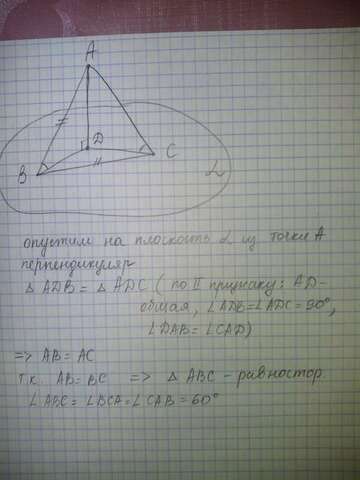 A
D
B
C
α
опустим на плоскость α из точки А
перпендикуляр
Δ ADB = Δ ADC ( по II признаку: AD-
общая, ∠ADB=∠ADC=90°,
∠DAB=∠CAD)
=> AB = AC
т.к. AB=BC => Δ ABC - равностор.
∠ABC = ∠BCA = ∠CAB = 60°